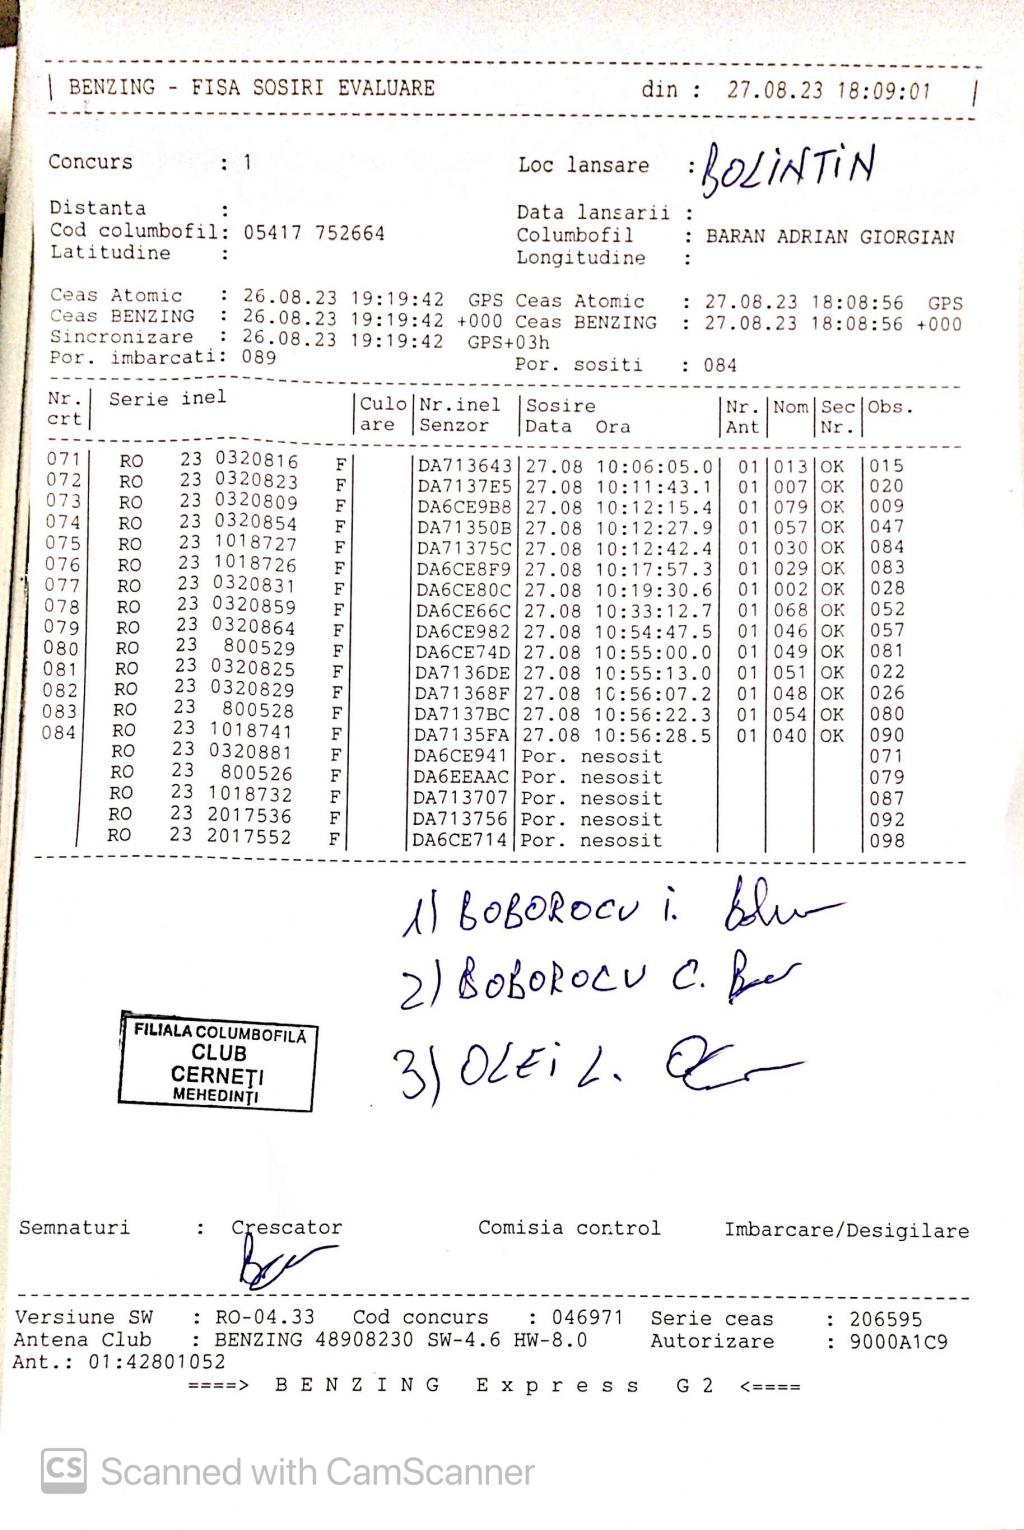 BENZING - FISA SOSIRI EVALUARE din : 27.08.23 18:09:01
Concurs : 1 Loc lansare : BOLINTIN
Distanta : Data lansarii :
Cod columbofil: 05417 752664 Columbofil : BARAN ADRIAN GIORGIAN
Latitudine : Longitudine :
Ceas Atomic : 26.08.23 19:19:42 GPS Ceas Atomic : 27.08.23 18:08:56 GPS
Ceas BENZING : 26.08.23 19:19:42 +000 Ceas BENZING : 27.08.23 18:08:56 +000
Sincronizare : 26.08.23 19:19:42 GPS+03h
Por. imbarcati: 089 Por. sositi : 084
Nr. | Serie inel |Culo|Nr.inel |Sosire |Nr.|Nom|Sec|Obs.
crt| |are |Senzor |Data Ora |Ant| |Nr.|
071| RO 23 0320816 F | |DA713643|27.08 10:06:05.0| 01|013|OK |015
072| RO 23 0320823 F | |DA7137E5|27.08 10:11:43.1| 01|007|OK |020
073| RO 23 0320809 F | |DA6CE9B8|27.08 10:12:15.4| 01|079|OK |009
074| RO 23 0320854 F | |DA71350B|27.08 10:12:27.9| 01|057|OK |047
075| RO 23 1018727 F | |DA71375C|27.08 10:12:42.4| 01|030|OK |084
076| RO 23 1018726 F | |DA6CE8F9|27.08 10:17:57.3| 01|029|OK |083
077| RO 23 0320831 F | |DA6CE80C|27.08 10:19:30.6| 01|002|OK |028
078| RO 23 0320859 F | |DA6CE66C|27.08 10:33:12.7| 01|068|OK |052
079| RO 23 0320864 F | |DA6CE982|27.08 10:54:47.5| 01|046|OK |057
080| RO 23 800529 F | |DA6CE74D|27.08 10:55:00.0| 01|049|OK |081
081| RO 23 0320825 F | |DA7136DE|27.08 10:55:13.0| 01|051|OK |022
082| RO 23 0320829 F | |DA71368F|27.08 10:56:07.2| 01|048|OK |026
083| RO 23 800528 F | |DA7137BC|27.08 10:56:22.3| 01|054|OK |080
084| RO 23 1018741 F | |DA7135FA|27.08 10:56:28.5| 01|040|OK |090
| RO 23 0320881 F | |DA6CE941|Por. nesosit | | | |071
| RO 23 800526 F | |DA6EEAAC|Por. nesosit | | | |079
| RO 23 1018732 F | |DA713707|Por. nesosit | | | |087
| RO 23 2017536 F | |DA713756|Por. nesosit | | | |092
| RO 23 2017552 F | |DA6CE714|Por. nesosit | | | |098
1) BOBOROCU i.
2) BOBOROCU C.
3) OLEI L.
FILIALA COLUMBOFILĂ
CLUB
CERNEȚI
MEHEDINȚI
Semnaturi : Crescator Comisia control Imbarcare/Desigilare
Versiune SW : RO-04.33 Cod concurs : 046971 Serie ceas : 206595
Antena Club : BENZING 48908230 SW-4.6 HW-8.0 Autorizare : 9000A1C9
Ant.: 01:42801052
====> B E N Z I N G E x p r e s s G 2 <====
CS Scanned with CamScanner